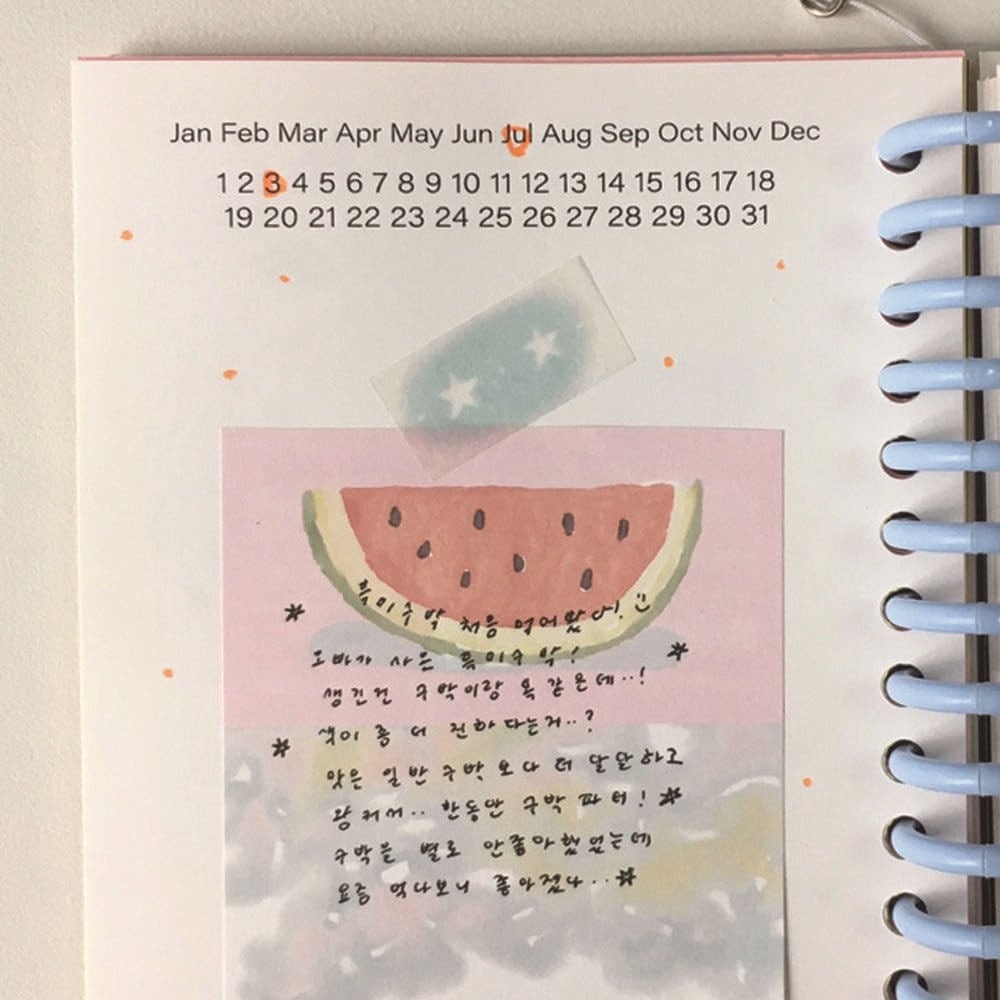 Jan Feb Mar Apr May Jun Jul Aug Sep Oct Nov Dec
1 2 3 4 5 6 7 8 9 10 11 12 13 14 15 16 17 18
19 20 21 22 23 24 25 26 27 28 29 30 31
흑미수박 처음 먹어봤다!
오빠가 사온 흑미수박!
생긴건 수박이랑 똑같은데..!
색이 좀 더 진하다는거..?
맛은 일반 수박보다 더 달달하고
왕커서.. 한동안 수박파티!
수박을 별로 안좋아했었는데
요즘 먹다보니 좋아졌다..